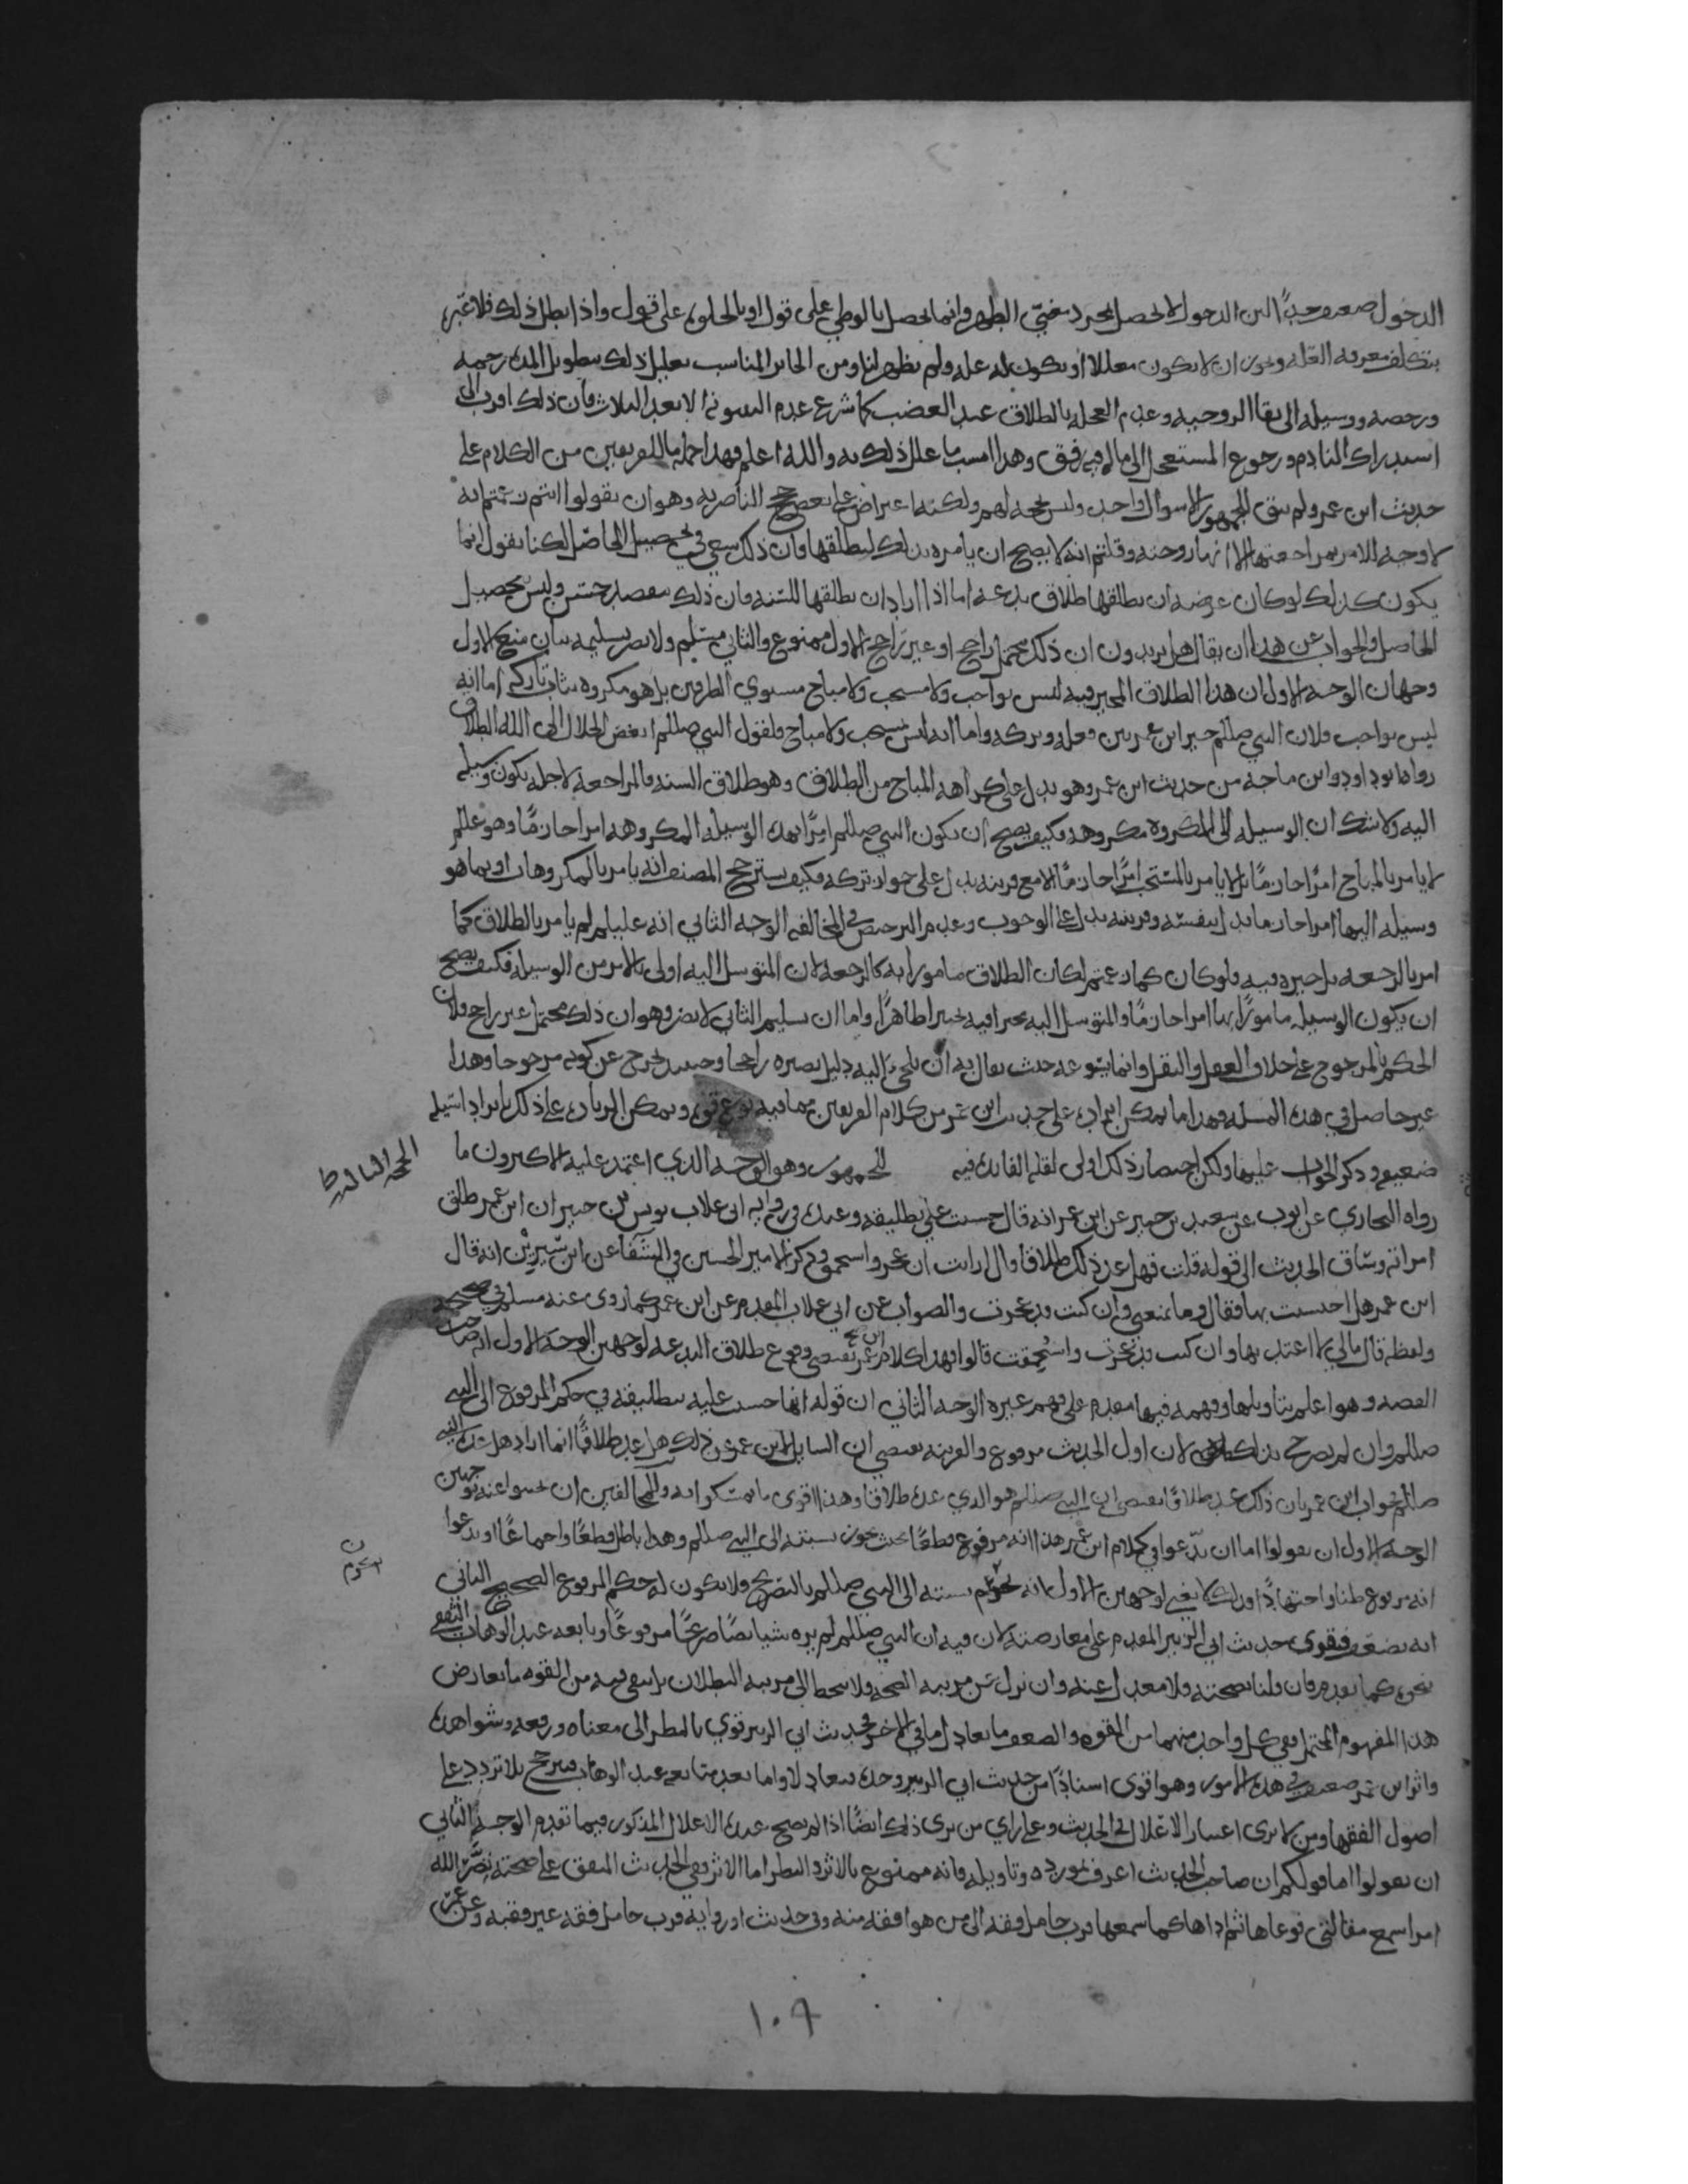 الدخول ضعيف جدًا لان الدخول لا يحصل بمجرد مضي الطهر وانما يحصل بالوطي على قول او بالخلوه على قول واذا بطل ذلك فلا
يتكلف معرفه العله ويجوز ان لا يكون معللا او يكون له عله ولم تظهر لنا ومن الجائز المناسب تعليل ذلك بتطويل المده رحمه
ورخصه ووسيله الى بقا الزوجيه وعدم العجله بالطلاق عند الغضب كما شرع عدم البينونه الا بعد الثلاث فان ذلك اقرب الى
استدراك النادم ورجوع المستعجل الى ماله فيه رفق وهذا انسب ما علل ذلك به والله اعلم فهذا جمله ما للفريقين من الكلام على
حديث ابن عمر ولم يبق للجمهور الا سوال واحد وليس بحجه لهم ولكنه اعتراض على بعض حجج الناصريه وهو ان يقولوا انتم زعمتم انه
لا وجه للامر بمراجعتها الا انها زوجته وقلتم انه لا يصح ان يامره بذلك ليطلقها فان ذلك سعي في تحصيل الحاصل لكنا نقول انما
يكون كذلك لو كان غرضه ان يطلقها طلاق بدعه اما اذا اراد ان يطلقها للسنه فان ذلك مقصد حسن وليس بتحصيل
الحاصل والجواب عن هذا ان يقال هل تريدون ان ذلك محتمل راجح او غير راجح الاول ممنوع والثاني مسلم ولا يضر تسليمه بيان منع الاول
وجهان الوجه الاول ان هذا الطلاق المخير فيه ليس بواجب ولا مستحب ولا مباح مستوي الطرفين بل هو مكروه يثاب تاركه اما انه
ليس بواجب فلان النبي صللم خير ابن عمر بين فعله وتركه واما انه ليس بمستحب ولا مباح فلقول النبي صللم ابغض الحلال الى الله الطلاق
رواه ابو داود وابن ماجه من حديث ابن عمر وهو يدل على كراهه المباح من الطلاق وهو طلاق السنه فالمراجعه لاجله يكون وسيله
اليه ولا شك ان الوسيله الى المكروه مكروهه فكيف يصح ان يكون النبي صللم امرًا بهذه الوسيله المكروهه امرا جازمًا وهو علم
لا يامر بالمباح امرًا جازمًا بل لا يامر بالمستحب امرًا جازمًا الا مع قرينه تدل على جواز تركه فكيف يسترجح المصنف انه يامر بالمكروهات او بما هو
وسيله اليها امرا جازما يدل بنفسه وقرينته تدل على الوجوب وعدم الترخيص في المخالفه الوجه الثاني انه عليلم لم يامر بالطلاق كما
امر بالرجعه بل خيره فيه فلو كان كما زعمتم لكان الطلاق مامورا به كالرجعه لان المتوسل اليه اولى بالامر من الوسيله فكيف يصح
ان يكون الوسيله مامورًا بها امرا جازمًا والمتوسل اليه مخيرا فيه تخييرا ظاهرًا واما ان تسليم الثاني لا يضر وهو ان ذلك محتمل غير راجح فلان
الحكم بالمرجوح على خلاف العقل والنقل وانما يتنوعه حيث يقال به ان يلجي اليه دليل يصيره راجحا وحينئذ يخرج عن كونه مرجوحا وهذا
غير حاصل في هذه المسله فهذا ما يمكن ايراده على حديث ابن عمر من كلام الفريقين مما فيه نوع قوه ويمكن الزياده على ذلك بايراد اسيله
ضعيفه وذكر الجواب عليها ولكن اختصار ذلك اولى لقله الفائده فيه للجمهور وهو الوجه الذي اعتمد عليه الاكثرون ما
رواه البخاري عن ايوب عن سعيد بن جبير عن ابن عمر انه قال حسبت علي بتطليقه وعنده في روايه ابي غلاب يونس بن جبير ان ابن عمر طلق
امراته وساق الحديث الى قوله قلت فهل عد ذلك طلاقا قال ارايت ان عجز واستحمق وذكر الامير الحسين في الشفا عن ابن سيرين انه قال
ابن عمر هل احتسبت بها فقال وما يمنعني وان كنت قد عجزت والصواب عن ابي غلاب المقدم عن ابن عمر كما روى عنه مسلم في صحيحه
ولفظه قال مالي لا اعتد بها وان كنت قد عجزت واستحمقت قالوا فهذا كلام ابن عمر يقتضي وقوع طلاق البدعه لوجهين الوجه الاول انه صاحب
القصه وهو اعلم بتاويلها وفهمه فيها مقدم على فهم غيره الوجه الثاني ان قوله انها حسبت عليه بتطليقه في حكم المرفوع الى النبي
صللم وان لم يصرح بذلك لان اول الحديث مرفوع والقرينه تقتضي ان السايل لابن عمر عن ذلك هل عد طلاقًا انما اراد هل عده النبي
صللم فجواب ابن عمر بان ذلك عد طلاقًا يقتضي ان النبي صللم هو الذي عده طلاقا وهذا اقوى ما تمسكوا به وللمخالفين ان يجيبوا عنه بوجهين
الوجه الاول ان يقولوا اما ان تدعوا في كلام ابن عمر هذا انه مرفوع قطعًا بحيث يجوز نسبته الى النبي صللم وهذا باطل قطعًا واجماعًا او تدعوا
انه مرفوع ظنا واجتهادًا فذلك لا يغني لوجهين الاول انه تحرم نسبته الى النبي صللم بالتصريح ولا يكون له حكم المرفوع الصحيح الثاني
انه يضعف فيقوى حديث ابي الزبير المقدم على معارضته لان فيه ان النبي صللم لم يره شيا نصًا صريحًا مرفوعًا وتابعه عبد الوهاب الثقفي
نحوه كما تقدم فان قلنا بصحته فلا معدل عنه وان نزل عن مرتبه الصحه ولا ينحط الى مرتبه البطلان بل يبقى فيه من القوه ما يعارض
هذا المفهوم المحتمل ففي كل واحد منهما من القوه والضعف ما يعادل ما في الاخر فحديث ابي الزبير قوي بالنظر الى معناه ورفعه وشواهده
واثر ابن عمر ضعيف في هذه الامور وهو اقوى اسنادًا من حديث ابي الزبير وحده فتعادلا واما بعد متابعه عبد الوهاب فيترجح بلا تردد على
اصول الفقها ومن لا يرى اعتبار الاعلال في الحديث وعلى راي من يرى ذلك ايضًا اذا لم يصح عنده الاعلال المذكور فيما تقدم الوجه الثاني
ان يقولوا اما قولكم ان صاحب الحديث اعرف بمورده وتاويله فانه ممنوع بالاثر والنظر اما الاثر ففي الحديث المتفق على صحته نضر الله
امرا سمع مقالتي فوعاها ثم اداها كما سمعها فرب حامل فقه الى من هو افقه منه وفي حديث او روايه فرب حامل فقه غير فقيه وعن
١٠٩